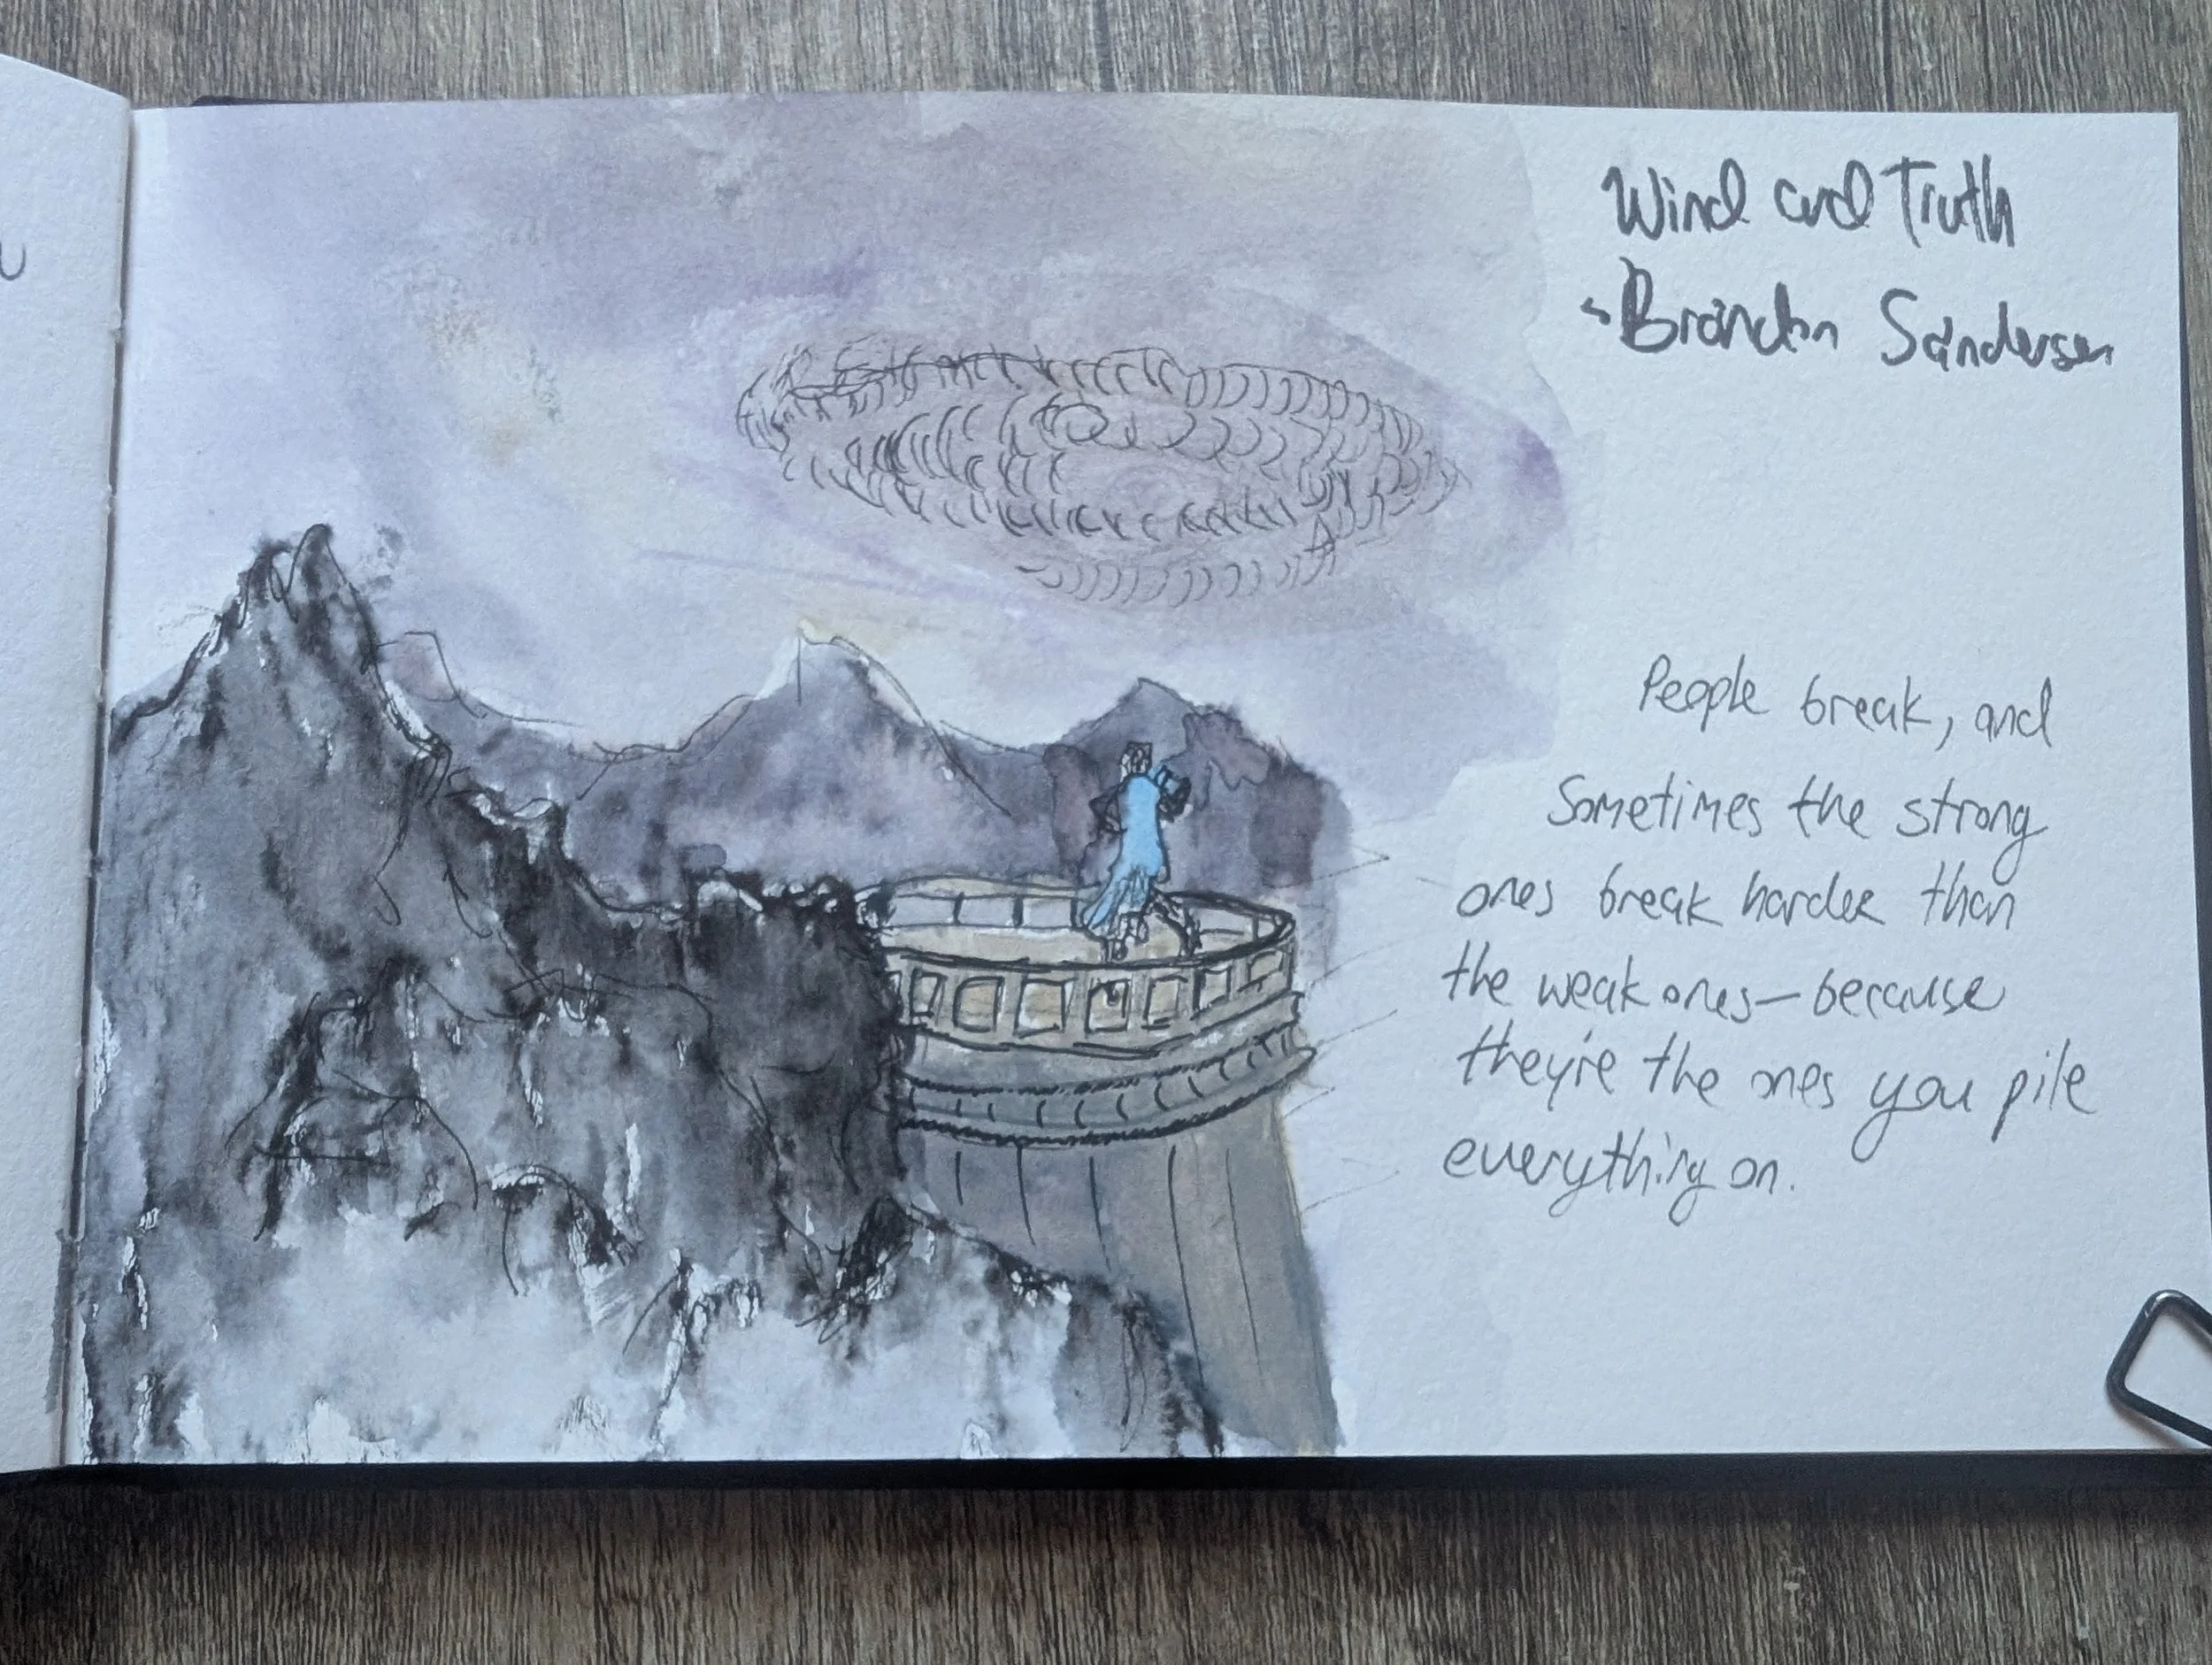 Wind and Truth
- Brandon Sanderson
People break, and
Sometimes the strong
ones break harder than
the weak ones—because
they're the ones you pile
everything on.